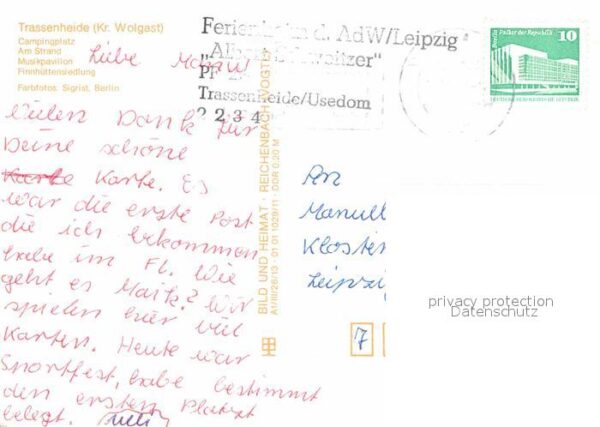 Trassenheide (Kr. Wolgast)
Campingplatz
Am Strand
Musikpavillon
Finnhüttensiedlung
Farbfotos. Sigrist, Berlin
Ferienheim d. AdW/Leipzig
Trassenheide/Usedom
2 2 3 4
Berlin Palast der Republik
10
Liebe
Vielen Dank für
Deine schöne
Karte Karte. Es
war die erste Post
die ich bekommen
habe im Fl. Wie
geht es Maik? Wir
spielen hier viel
Karten. Heute war
Sportfest, habe bestimmt
den ersten Platzt
belegt.
BILD UND HEIMAT · REICHENBACH (VOGTL)
A1/III/26/13 · 01 01 1029/11 · DDR 0,20 M
An
Manuel
Kloster
Leipzig
7
privacy protection
Datenschutz